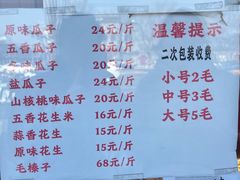 原味瓜子 24元/斤
五香瓜子 20元/斤
味瓜子 20元/斤
盐瓜子 24元/斤
山核桃味瓜子 20元/斤
五香花生米 16元/斤
蒜香花生 15元/斤
原味花生 15元/斤
毛榛子 68元/斤
温馨提示
二次包装收费
小号2毛
中号3毛
大号5毛